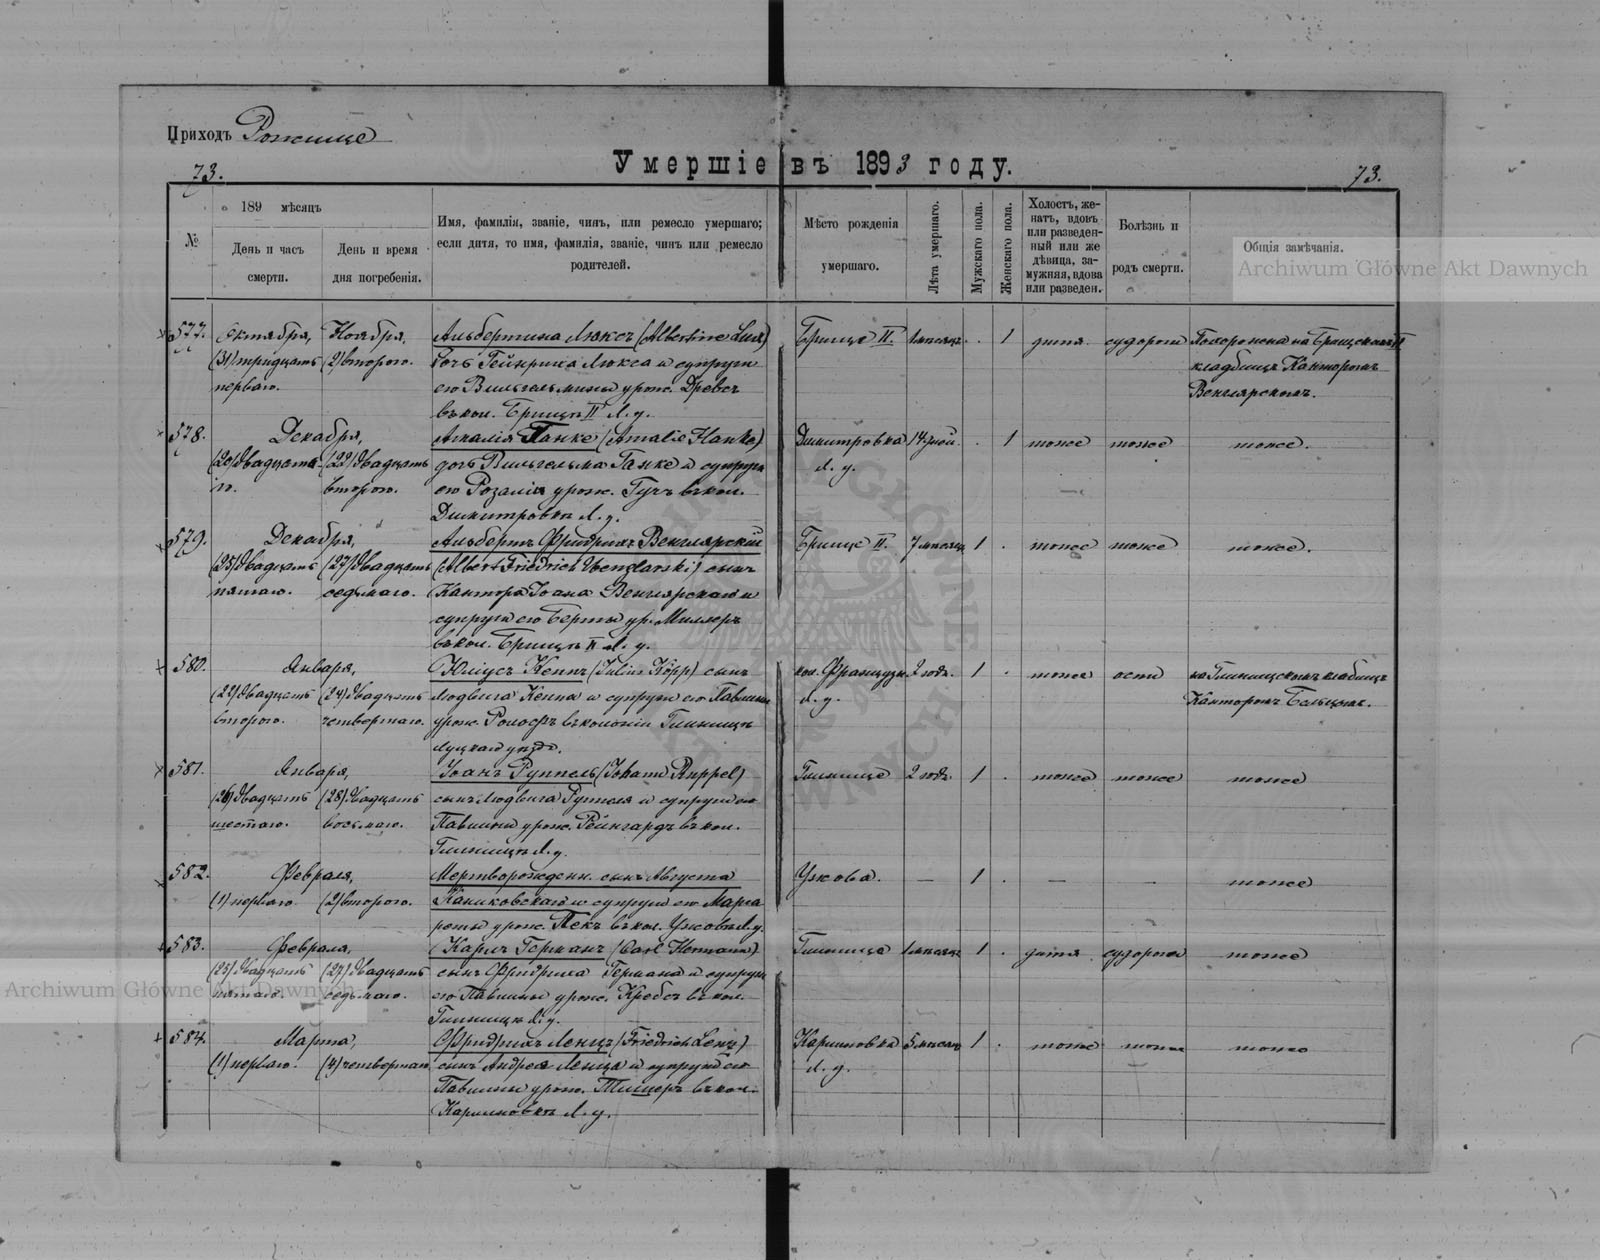 Приходъ Рожище
Умершіе въ 1893 году.
73.
73.
№
189 мѣсяцъ
День и часъ смерти.
День и время дня погребенія.
Имя, фамилія, званіе, чинъ, или ремесло умершаго;
если дитя, то имя, фамилія, званіе, чинъ или ремесло
родителей.
Мѣсто рожденія
умершаго.
Лѣта умершаго.
Мужскаго пола.
Женскаго пола.
Холостъ, же-
натъ, вдовъ
или разведен-
ный или же
дѣвица, за-
мужняя, вдова
или разведен.
Болѣзнь и
родъ смерти.
Общія замѣчанія.
Archiwum Główne Akt Dawnych
577.
Октября,
(31) тридцать
перваго.
Ноября,
(2) второго.
Альбертина Люксъ (Albertine Lux)
дочь Гейнриха Люкса и супруги
его Вильгельмины урож. Древсъ
въ кол. Брищъ II Л. у.
Брище II.
1 мѣсяцъ
1
дитя
судороги
Похоронена на Брищскомъ II
кладбищѣ Канторомъ
Венглярскимъ.
578.
Декабря,
(20) двадцата-
го.
(22) двадцать
второго.
Амалія Ганке (Amalie Hanke)
дочь Вильгельма Ганке и супруги
его Розаліи урож. Гучъ въ кол.
Димитровкѣ Л. у.
Димитровка
Л. у.
14 дней
1
тоже
тоже
тоже.
579.
Декабря,
(25) двадцать
пятаго.
(27) двадцать
седьмаго.
Альбертъ Фридрихъ Венглярскій
(Albert Friedrich Wenglarski) сынъ
Кантора Іоана Венглярскаго и
супруги его Берты ур. Миллеръ
въ кол. Брищъ II Л. у.
Брище II.
7 мѣсяц.
1
тоже
тоже
тоже.
580.
Января,
(22) двадцать
второго.
(24) двадцать
четвертаго.
Юліусъ Кеппъ (Julius Köpp) сынъ
Людвига Кеппа и супруги его Павлины
урож. Рологъ въ колоніи Глинищъ
Луцкаго уѣзда.
кол. Французк.
Л. у.
2 года.
1
тоже
оспа
на Глинищскомъ кладбищѣ
Канторомъ
581.
Января,
(26) двадцать
шестаго.
(28) двадцать
восьмаго.
Іоанъ Руппель (Johann Ruppel)
сынъ Людвига Руппеля и супруги его
Павлины урож. Рейнгардъ въ кол.
Глинищъ Л. у.
Глинище
2 года.
1
тоже
тоже
тоже
582.
Февраля,
(1) перваго.
(2) второго.
Мертворожден. сынъ Августа
Каниковскаго и супруги его Марга
реты урож. Пекъ въ кол. Ужова Л. у.
Ужова.
—
1
—
—
тоже
583.
Февраля,
(25) двадцать
пятаго.
(27) двадцать
седьмаго.
Карлъ Германъ (Carl Hermann)
сынъ Фридриха Германа и супруги
его Павлины урож. Кребсъ въ кол.
Глинищъ Л. у.
Глинище
1 мѣсяцъ
1
дитя
судороги
тоже
Archiwum Główne Akt Dawnych
584.
Марта,
(1) перваго.
(4) четвертаго.
Фридрихъ Ленцъ (Friedrich Lenz)
сынъ Андрея Ленца и супруги его
Павлины урож. Тишеръ въ кол.
Карлиновкѣ Л. у.
Карлиновка
Л. у.
5 мѣсяцъ
1
тоже
тоже
тоже